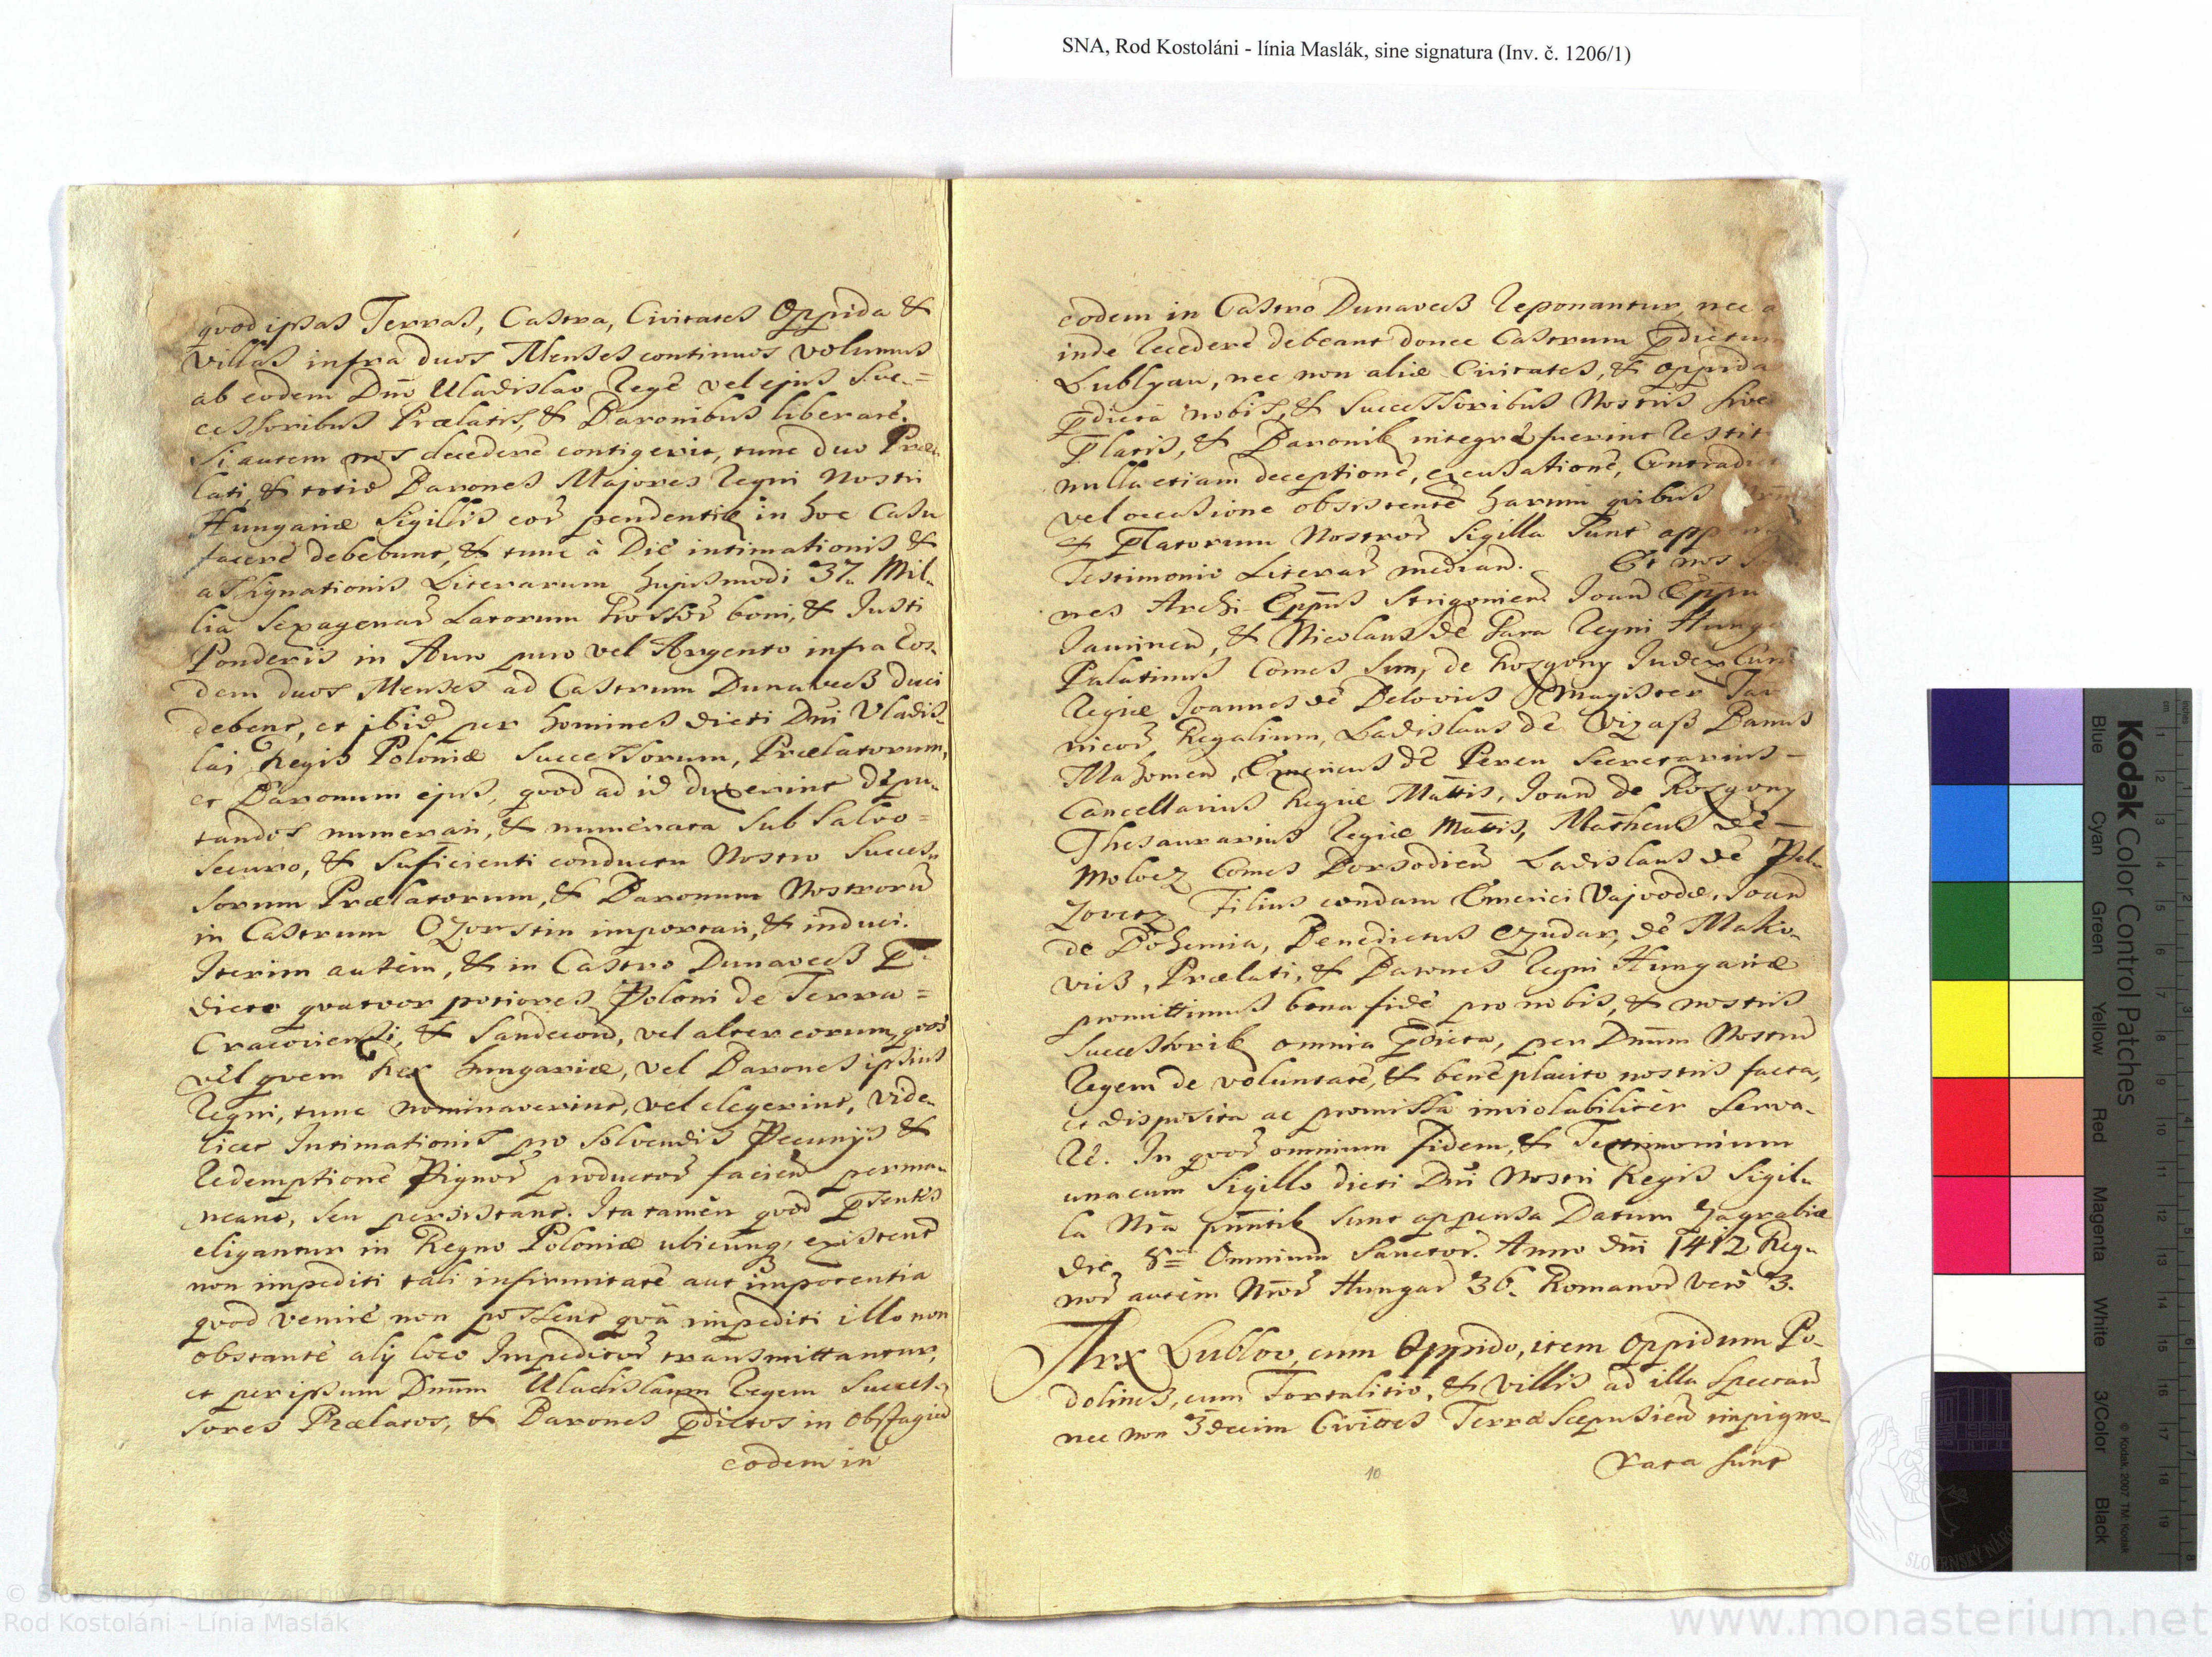 SNA, Rod Kostoláni - línia Maslák, sine signatura (Inv. č. 1206/1)
qvod ipsas Terras, Castra, Civitates Oppida &
Villas infra duos Menses continuos volumus
ab eodem Dn̄o Uladislao Rege vel ejus Suc=
cessoribus Prælatis, & Baronibus liberare.
Si autem nos decedere contigerit, tunc duo Præ
lati, & totid Barones Majores Regni Nostri
Hungariæ Sigillis eor pendentib in hoc Casu
facere debebunt, & tunc à Die intimationis &
assignationis Literarum hujusmodi 37. Mil
lia Sexagenar Latorum Grossor boni, & Justi
Ponderis in Auro puro vel Argento infra eos
dem duos Menses ad Castrum Dunavecz duci
debent, et ibid per homines dicti Dn̄i Vladis
lai Regis Poloniæ Successorum, Prælatorum,
et Baronum ejus, qvod ad id duxerint depu
tandos numerari, & numerata sub Salvo=
Securo, & Suficienti conductu Nostro Succes
sorum Prælatorum, & Baronum Nostrorū
in Castrum Ozorstin importari, & induci.
Iterim autem, & in Castro Dunavecz p̄
dicto qvatvor potiores Poloni de Terra=
Cracoviensi, & Sandecen, vel alter eorum, qvos
vel qvem Rex Hungariæ, vel Barones ipsius
Regni, tunc nominaverint, vel elegerint, vide
licet Intimationis pro Solvendis Pecunÿs &
Redemptione Pignor productor facien perma
neant, seu persistant. Ita tamen qvod p̄sentes
eligantur in Regno Poloniæ ubicunq, existent
non impediti tali infirmitate aut impotentia
qvod venire non possent qvā impediti illo non
obstante alÿ loco Impeditor transmittantur,
et per ipsum Dn̄um Uladislaum Regem Succes
sores Prælatos, & Barones p̄dictos in obstagiū
eodem in
eodem in Castro Dunavecz reponantur, nec a
inde recedere debeant donec Castrum p̄dictum
Lublyau, nec non aliæ Civitates, & oppida
p̄dicta nobis, & Successoribus Nostris sive
P̄latis, & Baronib integre fuerint restit
nulla etiam deceptione, excusatione, Contradict
vel occasione obsistente harum qvibus
& P̄latorum Nostror Sigilla Sunt appen
Testimonio Literar mediand. Et nos
nes Archi-Ep̄pus Strigonien Joan Ep̄pu
Jaurinen, & Nicolaus de Gara Regni Hung
Palatinus Comes Sim, de Rozgony Judex Curi
Regiæ Joannes de Pelovics Magister Tav
nicor Regalium, Ladislaus de Vizasz Banus
Mahomen, Emericus de Peren Secretarius
Cancellarius Regiæ Mattis, Joan de Rozgony
Thesaurarius Regiæ Mattis, Matheus de
Molocz Comes Borsodien Ladislaus de Pel
zovetz Filius condam Emerici Vajvodæ, Joan
de Bohemia, Benedictus Czudar, de Mako
visz, Prælati, & Barones Regni Hungariæ
promittimus bona fide pro nobis, & nostris
Successorib omnia p̄dicta, per Dn̄um Nostrū
Regem de voluntate, & beneplacito nostris facta,
et disposita ac promissa inviolabiliter Serva
re. In qvor omnium fidem, & Testimonium
unacum Sigillo dicti Dn̄i Nostri Regis Sigil
la Nr̄a pn̄tib sunt appensa Datum Zagrabiæ
die 8 Omnium Sanctor. Anno Dn̄i 1412 Reg
nor autem Nr̄or Hungar 36. Romanor vero 3.
Arx Lublov, cum Oppido, item Oppidum Po
dolines, cum Fortalitio, & Villis ad illa Spectan
nec non 3decim Civittes Terræ Scepusien impigno
rata sunt
10
Kodak Color Control Patches
Blue Cyan Green Yellow Red Magenta White 3/Color Black
© Kodak, 2007 TM: Kodak
© Slovenský národný archív 2010
Rod Kostoláni - Línia Maslák
www.monasterium.net